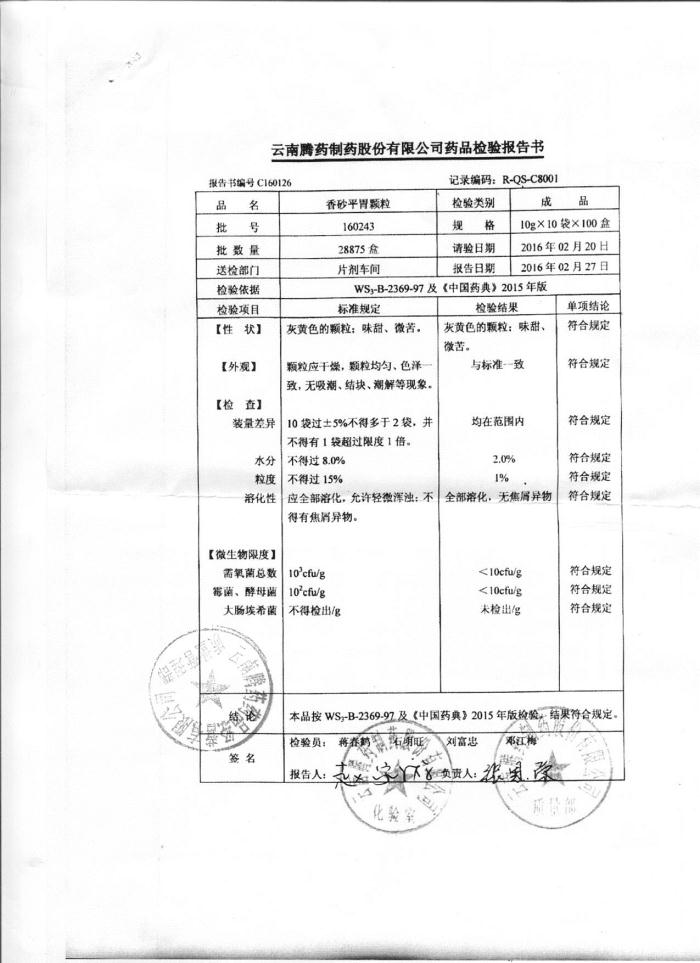 云南腾药制药股份有限公司药品检验报告书
报告书编号 C160126 记录编码：R-QS-C8001
品 名 香砂平胃颗粒 检验类别 成 品
批 号 160243 规 格 10g×10 袋×100 盒
批 数 量 28875 盒 请验日期 2016 年 02 月 20 日
送检部门 片剂车间 报告日期 2016 年 02 月 27 日
检验依据 WS₃-B-2369-97 及《中国药典》2015 年版
检验项目 标准规定 检验结果 单项结论
【性 状】 灰黄色的颗粒；味甜、微苦。 灰黄色的颗粒；味甜、 符合规定
微苦。
【外观】 颗粒应干燥，颗粒均匀、色泽一 与标准一致 符合规定
致，无吸潮、结块、潮解等现象。
【检 查】
装量差异 10 袋过±5%不得多于 2 袋，并 均在范围内 符合规定
不得有 1 袋超过限度 1 倍。
水分 不得过 8.0% 2.0% 符合规定
粒度 不得过 15% 1% 符合规定
溶化性 应全部溶化，允许轻微浑浊；不 全部溶化，无焦屑异物 符合规定
得有焦屑异物。
【微生物限度】
需氧菌总数 10³cfu/g ＜10cfu/g 符合规定
霉菌、酵母菌 10²cfu/g ＜10cfu/g 符合规定
大肠埃希菌 不得检出/g 未检出/g 符合规定
结 论 本品按 WS₃-B-2369-97 及《中国药典》2015 年版检验，结果符合规定。
签 名 检验员： 蒋春鹤 石明旺 刘富忠 邓江梅
报告人： 负责人：
化验室
质量部